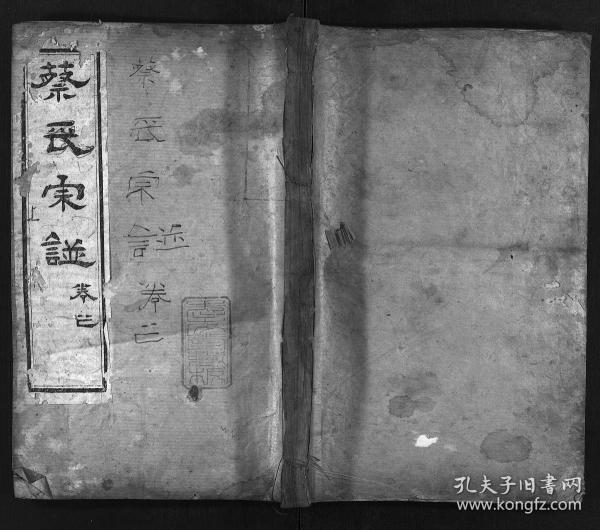 蔡氏宗譜
卷二
上
蔡氏宗譜卷二
孔夫子旧书网
www.kongfz.com